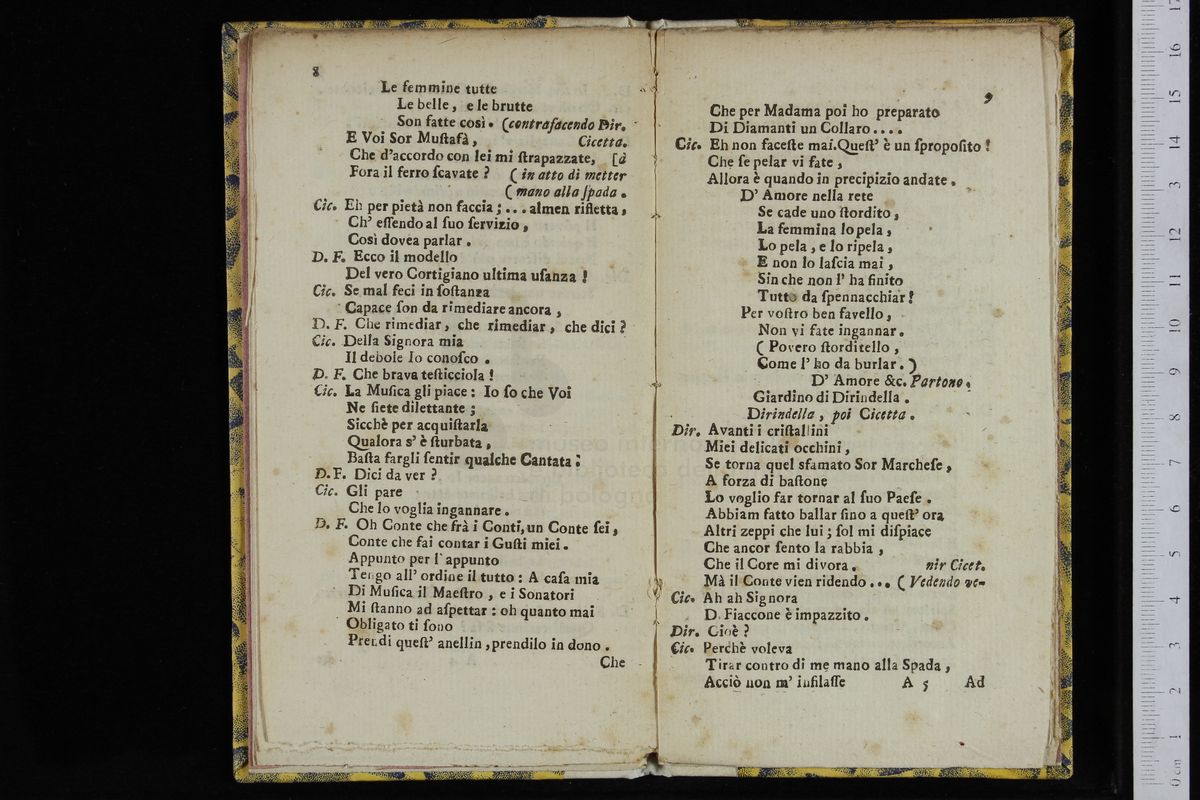 8
Le femmine tutte
Le belle, e le brutte
Son fatte così. (contrafacendo Dir.
E Voi Sor Muſtafà, Cicetta.
Che d'accordo con lei mi ſtrapazzate, [à
Fora il ferro ſcavate ? ( in atto di metter
( mano alla ſpada .
Cic. Eh per pietà non faccia ; ... almen rifletta,
Ch' eſſendo al ſuo ſervizio,
Così dovea parlar .
D. F. Ecco il modello
Del vero Cortigiano ultima uſanza !
Cic. Se mal feci in ſoſtanza
Capace ſon da rimediare ancora ,
D. F. Che rimediar, che rimediar, che dici ?
Cic. Della Signora mia
Il debole Io conoſco .
D. F. Che brava teſticciola !
Cic. La Muſica gli piace : Io ſo che Voi
Ne ſiete dilettante ;
Sicchè per acquiſtarla
Qualora s' è ſturbata,
Baſta fargli ſentir qualche Cantata ;
D. F. Dici da ver ?
Cic. Gli pare
Che lo voglia ingannare .
D. F. Oh Conte che frà i Conti, un Conte ſei,
Conte che fai contar i Guſti miei .
Appunto per l' appunto
Tengo all' ordine il tutto : A caſa mia
Di Muſica il Maeſtro , e i Sonatori
Mi ſtanno ad aſpettar : oh quanto mai
Obligato ti ſono
Prendi queſt' anellin , prendilo in dono .
Che
9
Che per Madama poi ho preparato
Di Diamanti un Collaro ....
Cic. Eh non faceſte mai. Queſt' è un ſpropoſito !
Che ſe pelar vi fate ,
Allora è quando in precipizio andate .
D' Amore nella rete
Se cade uno ſtordito,
La femmina lo pela ,
Lo pela , e lo ripela ,
E non lo laſcia mai ,
Sin che non l' ha finito
Tutto da ſpennacchiar !
Per voſtro ben favello ,
Non vi fate ingannar .
( Povero ſtorditello ,
Come l' ho da burlar . )
D' Amore &c. Partono .
Giardino di Dirindella .
Dirindella , poi Cicetta .
Dir. Avanti i criſtallini
Miei delicati occhini ,
Se torna quel sfamato Sor Marcheſe ,
A forza di baſtone
Lo voglio far tornar al ſuo Paeſe .
Abbiam fatto ballar ſino a queſt' ora
Altri zeppi che lui ; ſol mi diſpiace
Che ancor ſento la rabbia ,
Che il Core mi divora . nir Cicet.
Mà il Conte vien ridendo ... ( Vedendo ve-
Cic. Ah ah Signora
D. Fiaccone è impazzito .
Dir. Cioè ?
Cic. Perchè voleva
Tirar contro di me mano alla Spada ,
Acciò non m' infilaſſe A 5 Ad